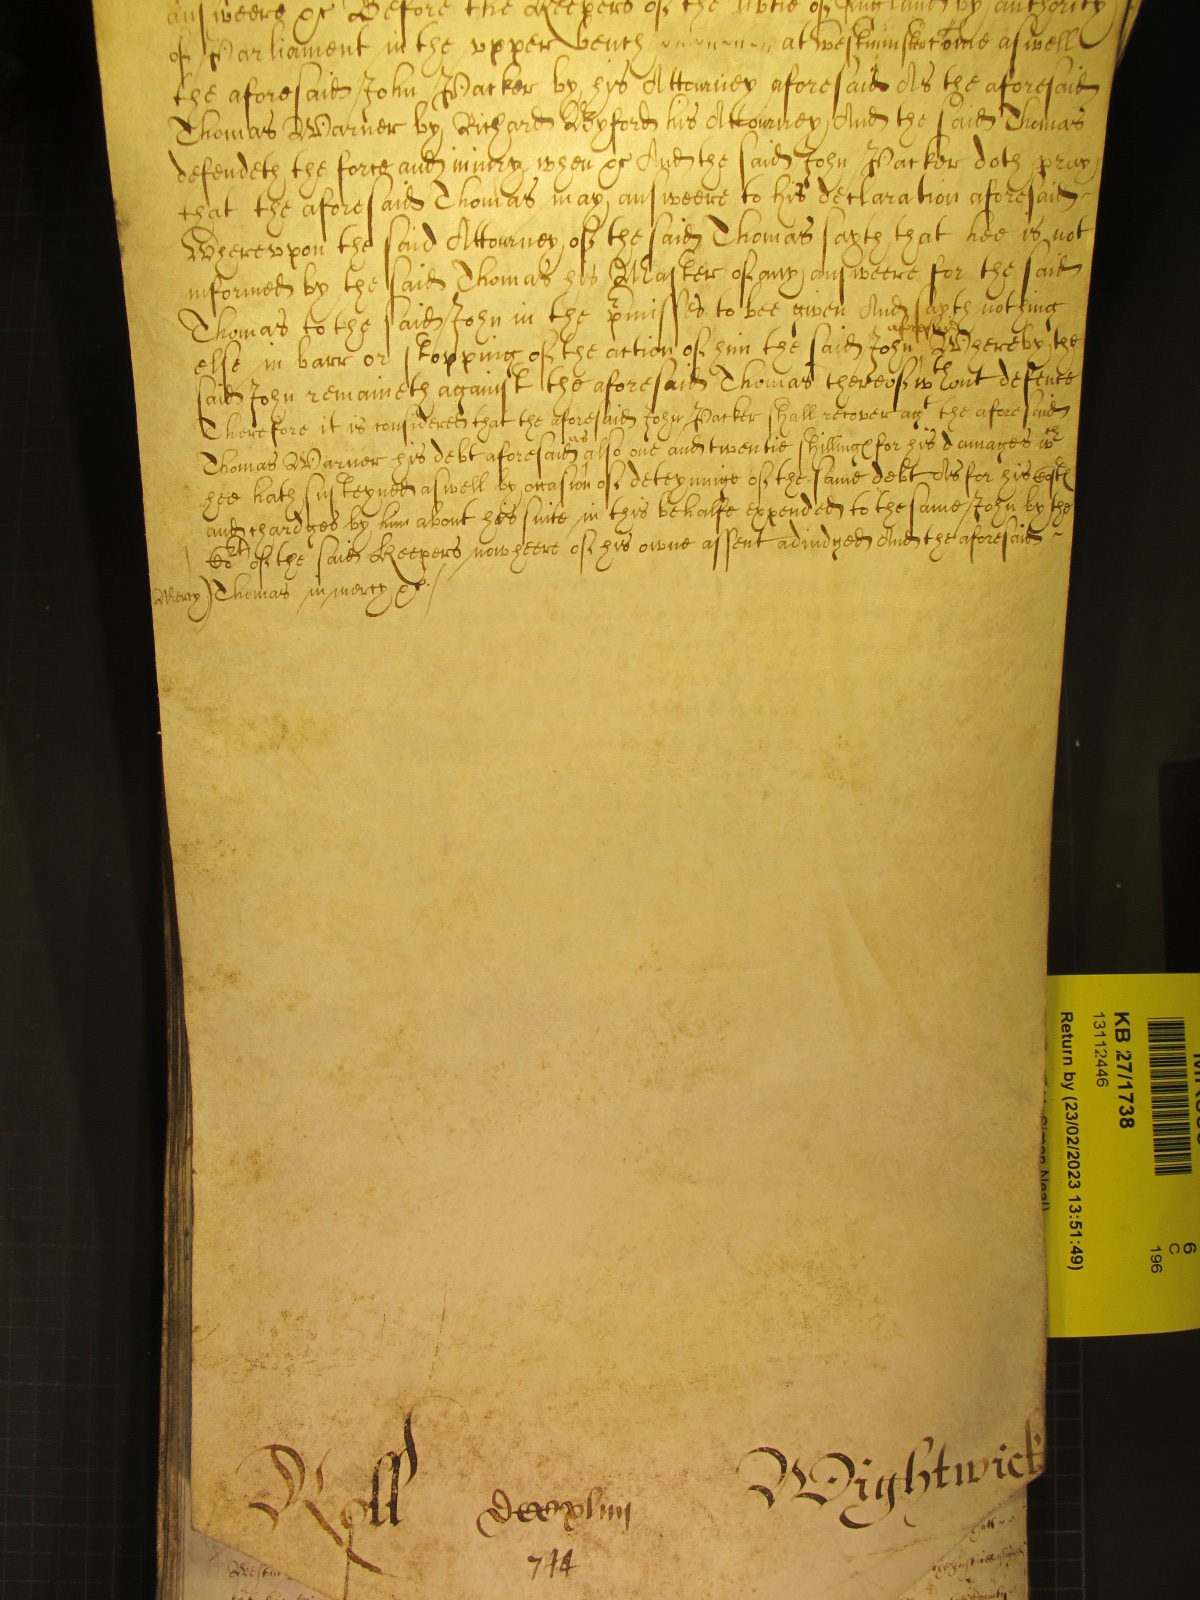 answeere &c Before the Keepers of the lib̃tie of England by authority
of Parliament in the vpper bench at Westminster Come aswell
the aforesaid John Packer by his Attourney aforesaid As the aforesaid
Thomas Warner by Richard Byford his Attourney And the said Thomas
defendeth the force and iniury when &c And the said John Packer doth pray
that the aforesaid Thomas may answeere to his declaration aforesaid
Wherevpon the said Attourney of the said Thomas sayth that hee is not
informed by the said Thomas his Master of any answeere for the said
Thomas to the said John in the p̃misses to bee given And sayth nothing
else in barr or stopping of the action of him the said John aforesaid Whereby the
said John remaineth against the aforesaid Thomas thereof wthout defence
Therefore it is considered that the aforesaid John Packer shall recover agt the aforesaid
Thomas Warner his debt aforesaid as also one and twentie shillings for his damages wch
hee hath susteyned aswell by occasion of deteyninge of the same debt As for his costs
and chardges by him about his suite in this behalfe expended to the same John by the
Cort of the said Keepers now heere of his owne assent adiudged And the aforesaid
Mercy) Thomas in mercy &c
KB 27/1738
13112446
Return by (23/02/2023 13:51:49)
6
C
196
Roll Dccxliiij Wightwick
744
Westm